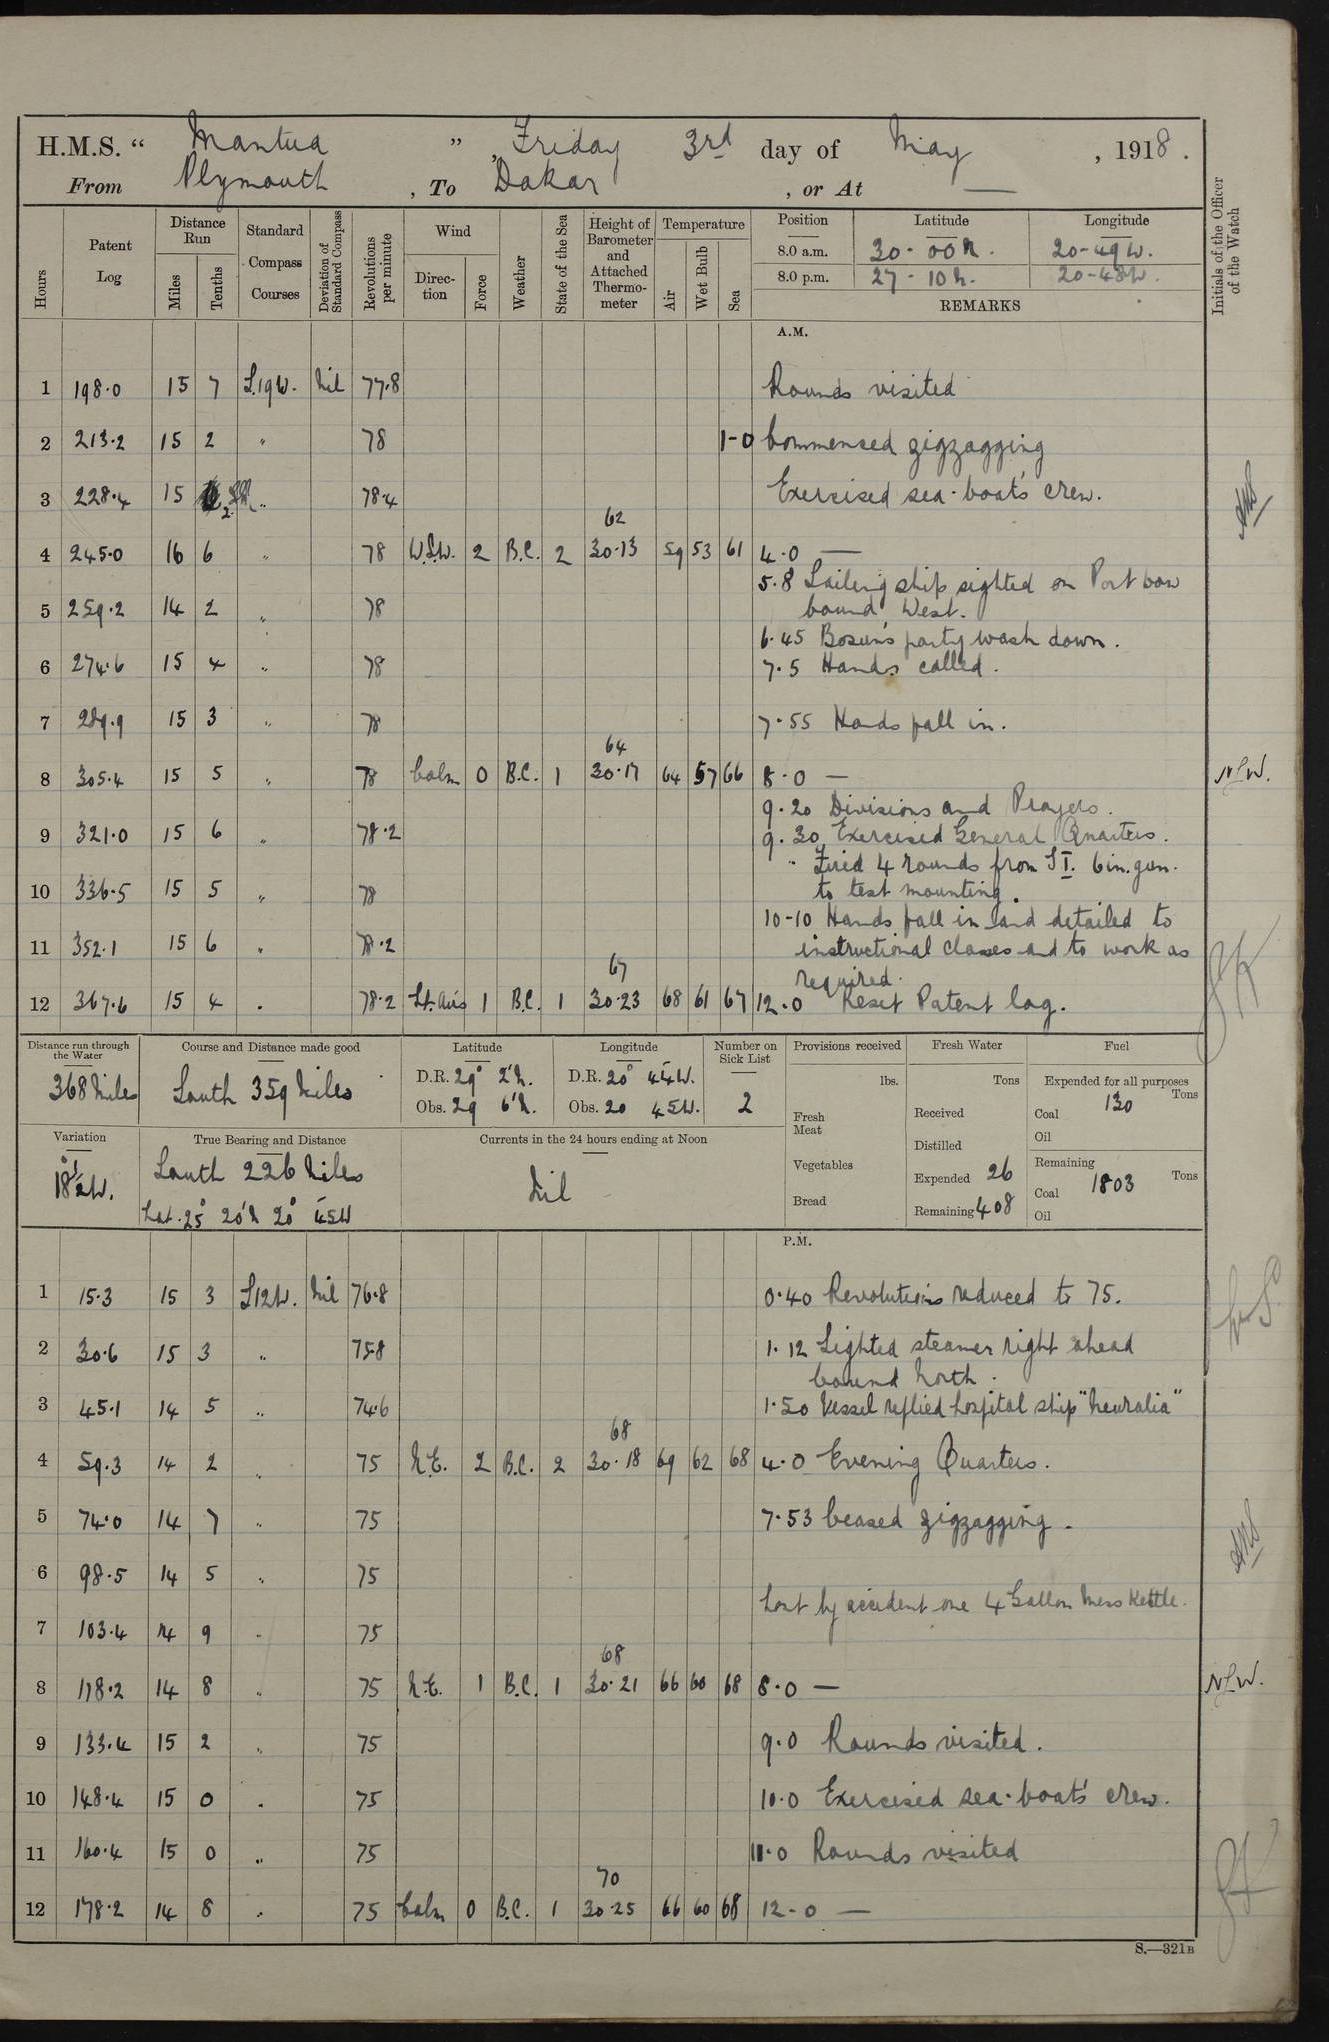 H.M.S. “ Mantua ” , Friday 3rd day of May , 1918 .
From Plymouth , To Dakar , or At —
Hours
Patent Log
Distance Run
Miles
Tenths
Standard Compass Courses
Deviation of Standard Compass
Revolutions per minute
Wind
Direction
Force
Weather
State of the Sea
Height of Barometer and Attached Thermometer
Temperature
Air
Wet Bulb
Sea
Position Latitude Longitude
8.0 a.m. 30-00N. 20-49W.
8.0 p.m. 27-10N. 20-48W.
REMARKS
Initials of the Officer of the Watch
A.M.
1 198.0 15 7 S.19W. Nil 77.8 Rounds visited
2 213.2 15 2 " 78 1-0 Commenced zigzagging
3 228.4 15 2 " 78.4 Exercised sea-boat's crew.
62
4 245.0 16 6 " 78 W.S.W. 2 B.C. 2 30.13 59 53 61 4.0 —
5.8 Sailing ship sighted on Port bow
5 259.2 14 2 " 78 bound West.
6.45 Bosun's party wash down.
6 274.6 15 4 " 78 7.5 Hands called.
7 289.9 15 3 " 78 7.55 Hands fall in.
64
8 305.4 15 5 " 78 Calm 0 B.C. 1 30.17 64 57 66 8.0 — N.L.W.
9.20 Divisions and Prayers.
9 321.0 15 6 " 78.2 9.30 Exercised General Quarters.
" Fired 4 rounds from S I. 6in. gun.
10 336.5 15 5 " 78 to test mounting.
10-10 Hands fall in and detailed to
11 352.1 15 6 " 78.2 instructional classes and to work as
67
required.
12 367.6 15 4 " 78.2 Lt. airs 1 B.C. 1 30.23 68 61 67 12.0 Reset Patent log.
Distance run through the Water
368 Miles
Course and Distance made good
South 359 Miles
Latitude
D.R. 29° 2'N.
Obs. 29 6'N.
Longitude
D.R. 20° 44'W.
Obs. 20 45W.
Number on Sick List
2
Provisions received
lbs.
Fresh Meat
Vegetables
Bread
Fresh Water
Tons
Received
Distilled
Expended 26
Remaining 408
Fuel
Expended for all purposes
Tons
Coal 130
Oil
Remaining
Coal 1803 Tons
Oil
Variation
18½°W.
True Bearing and Distance
South 226 Miles
Lat. 25° 20'N 20° 45'W
Currents in the 24 hours ending at Noon
Nil
P.M.
1 15.3 15 3 S12W. Nil 76.8 0.40 Revolutions reduced to 75.
2 30.6 15 3 " 75.8 1.12 Sighted steamer right ahead
bound North.
3 45.1 14 5 " 74.6 1.50 Vessel replied hospital ship "Neuralia"
68
4 59.3 14 2 " 75 N.E. 2 B.C. 2 30.18 69 62 68 4.0 Evening Quarters.
5 74.0 14 7 " 75 7.53 Ceased zigzagging.
6 98.5 14 5 " 75
Lost by accident one 4 Gallon Mess Kettle.
7 103.4 14 9 " 75
68
8 118.2 14 8 " 75 N.E. 1 B.C. 1 30.21 66 60 68 8.0 — N.L.W.
9 133.4 15 2 " 75 9.0 Rounds visited.
10 148.4 15 0 " 75 10.0 Exercised sea-boat's crew.
11 160.4 15 0 " 75 11.0 Rounds visited
70
12 178.2 14 8 " 75 Calm 0 B.C. 1 30.25 66 60 68 12.0 —
S.—321B